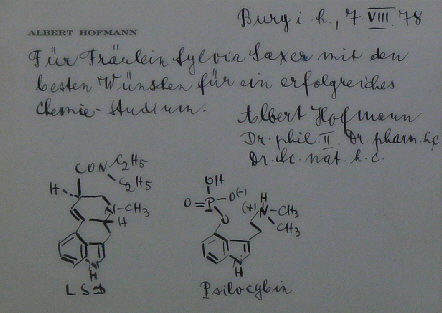 Burg i. L., 7 VIII. 78
ALBERT HOFMANN
Für Fräulein Sylvia Saxer mit den
besten Wünschen für ein erfolgreiches
Chemie-Studium.
Albert Hofmann
Dr. phil. II. Dr. pharm. h.c.
Dr. sc. nat. h.c.
CON C2H5
C2H5
H
N-CH3
H
N
H
LSD
OH
O=P-O(-)
O
H
(+)N-CH3
CH3
N
H
Psilocybin